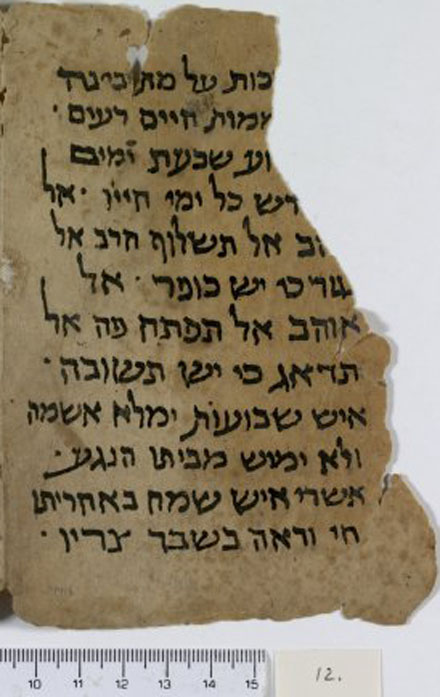 כות על מת
מות חיים רעים ·
שבעת ימים
כל ימי חייו · אל
אל תשלוף חרב אל
כי יש כופר · אל
אוהב אל תפתח פה אל
תדאג כי יש תשובה ·
איש שבועות ימלא אשמה
ולא ימוש מביתו הנגע ·
אשרי איש שמח באחריתו
חי וראה בשבר צריו ·
10 11 12 13 14 15
12.